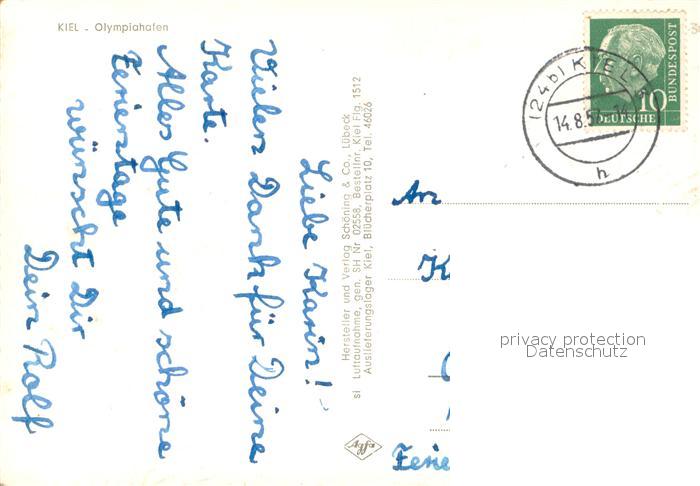 KIEL - Olympiahafen
Liebe Karin!
Vielen Dank für Deine
Karte.
Alles Gute und schöne
Ferientage
wünscht Dir
Dein Rolf
Hersteller und Verlag Schöning & Co., Lübeck
si Luftaufnahme, gen. SH Nr 02558, Bestellnr. Kiel Flg. 1512
Auslieferungslager Kiel, Blücherplatz 10, Tel. 46026
Agfa
(24b) KIEL
14.8.
h
10
DEUTSCHE
BUNDESPOST
An
K
Ferie
privacy protection
Datenschutz